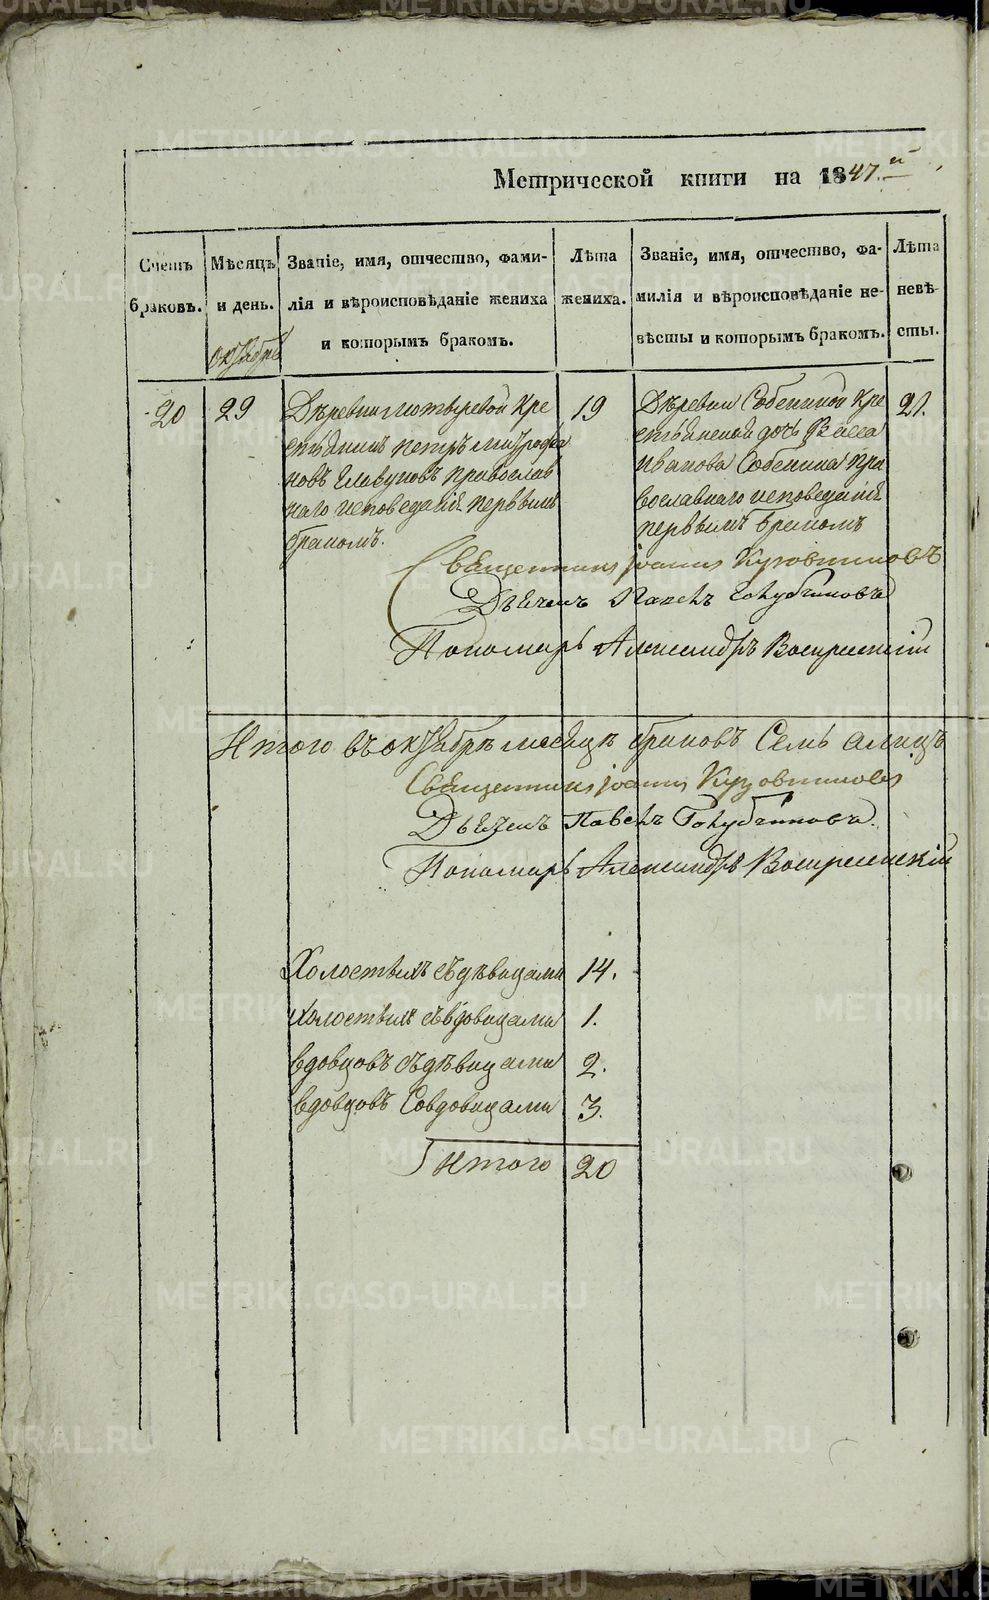 Метрической книги на 1847.й
Счетъ браковъ.
Мѣсяцъ и день.
Званіе, имя, отчество, фамилія и вѣроисповѣданіе жениха и которымъ бракомъ.
Лѣта жениха.
Званіе, имя, отчество, фамилія и вѣроисповѣданіе невѣсты и которымъ бракомъ.
Лѣта невѣсты.
октябрь
20
29
Дѣревни Кре
стьянинъ Петръ Митрофа
новъ Главуновъ Православ
наго исповеданія первымъ
бракомъ.
19
Дѣревни Собениной Кре
стьянская дочь Васса
Иванова Собенина Пра
вославнаго исповеданія
первымъ бракомъ
21.
Священникъ Іоаннъ
Дьячекъ Павелъ Голубчиковъ
Пономарь Александръ Воскресенскій
Итого въ октябрѣ месяцѣ браковъ Семь
Священникъ Іоаннъ
Дьячекъ Павелъ Голубчиковъ.
Пономарь Александръ Воскресенскій
Холостыхъ съ дѣвицами 14.
холостыхъ съ вдовицами 1.
вдовцовъ съ дѣвицами 2.
вдовцовъ Совдовицами 3.
Итого 20
METRIKI.GASO-URAL.RU